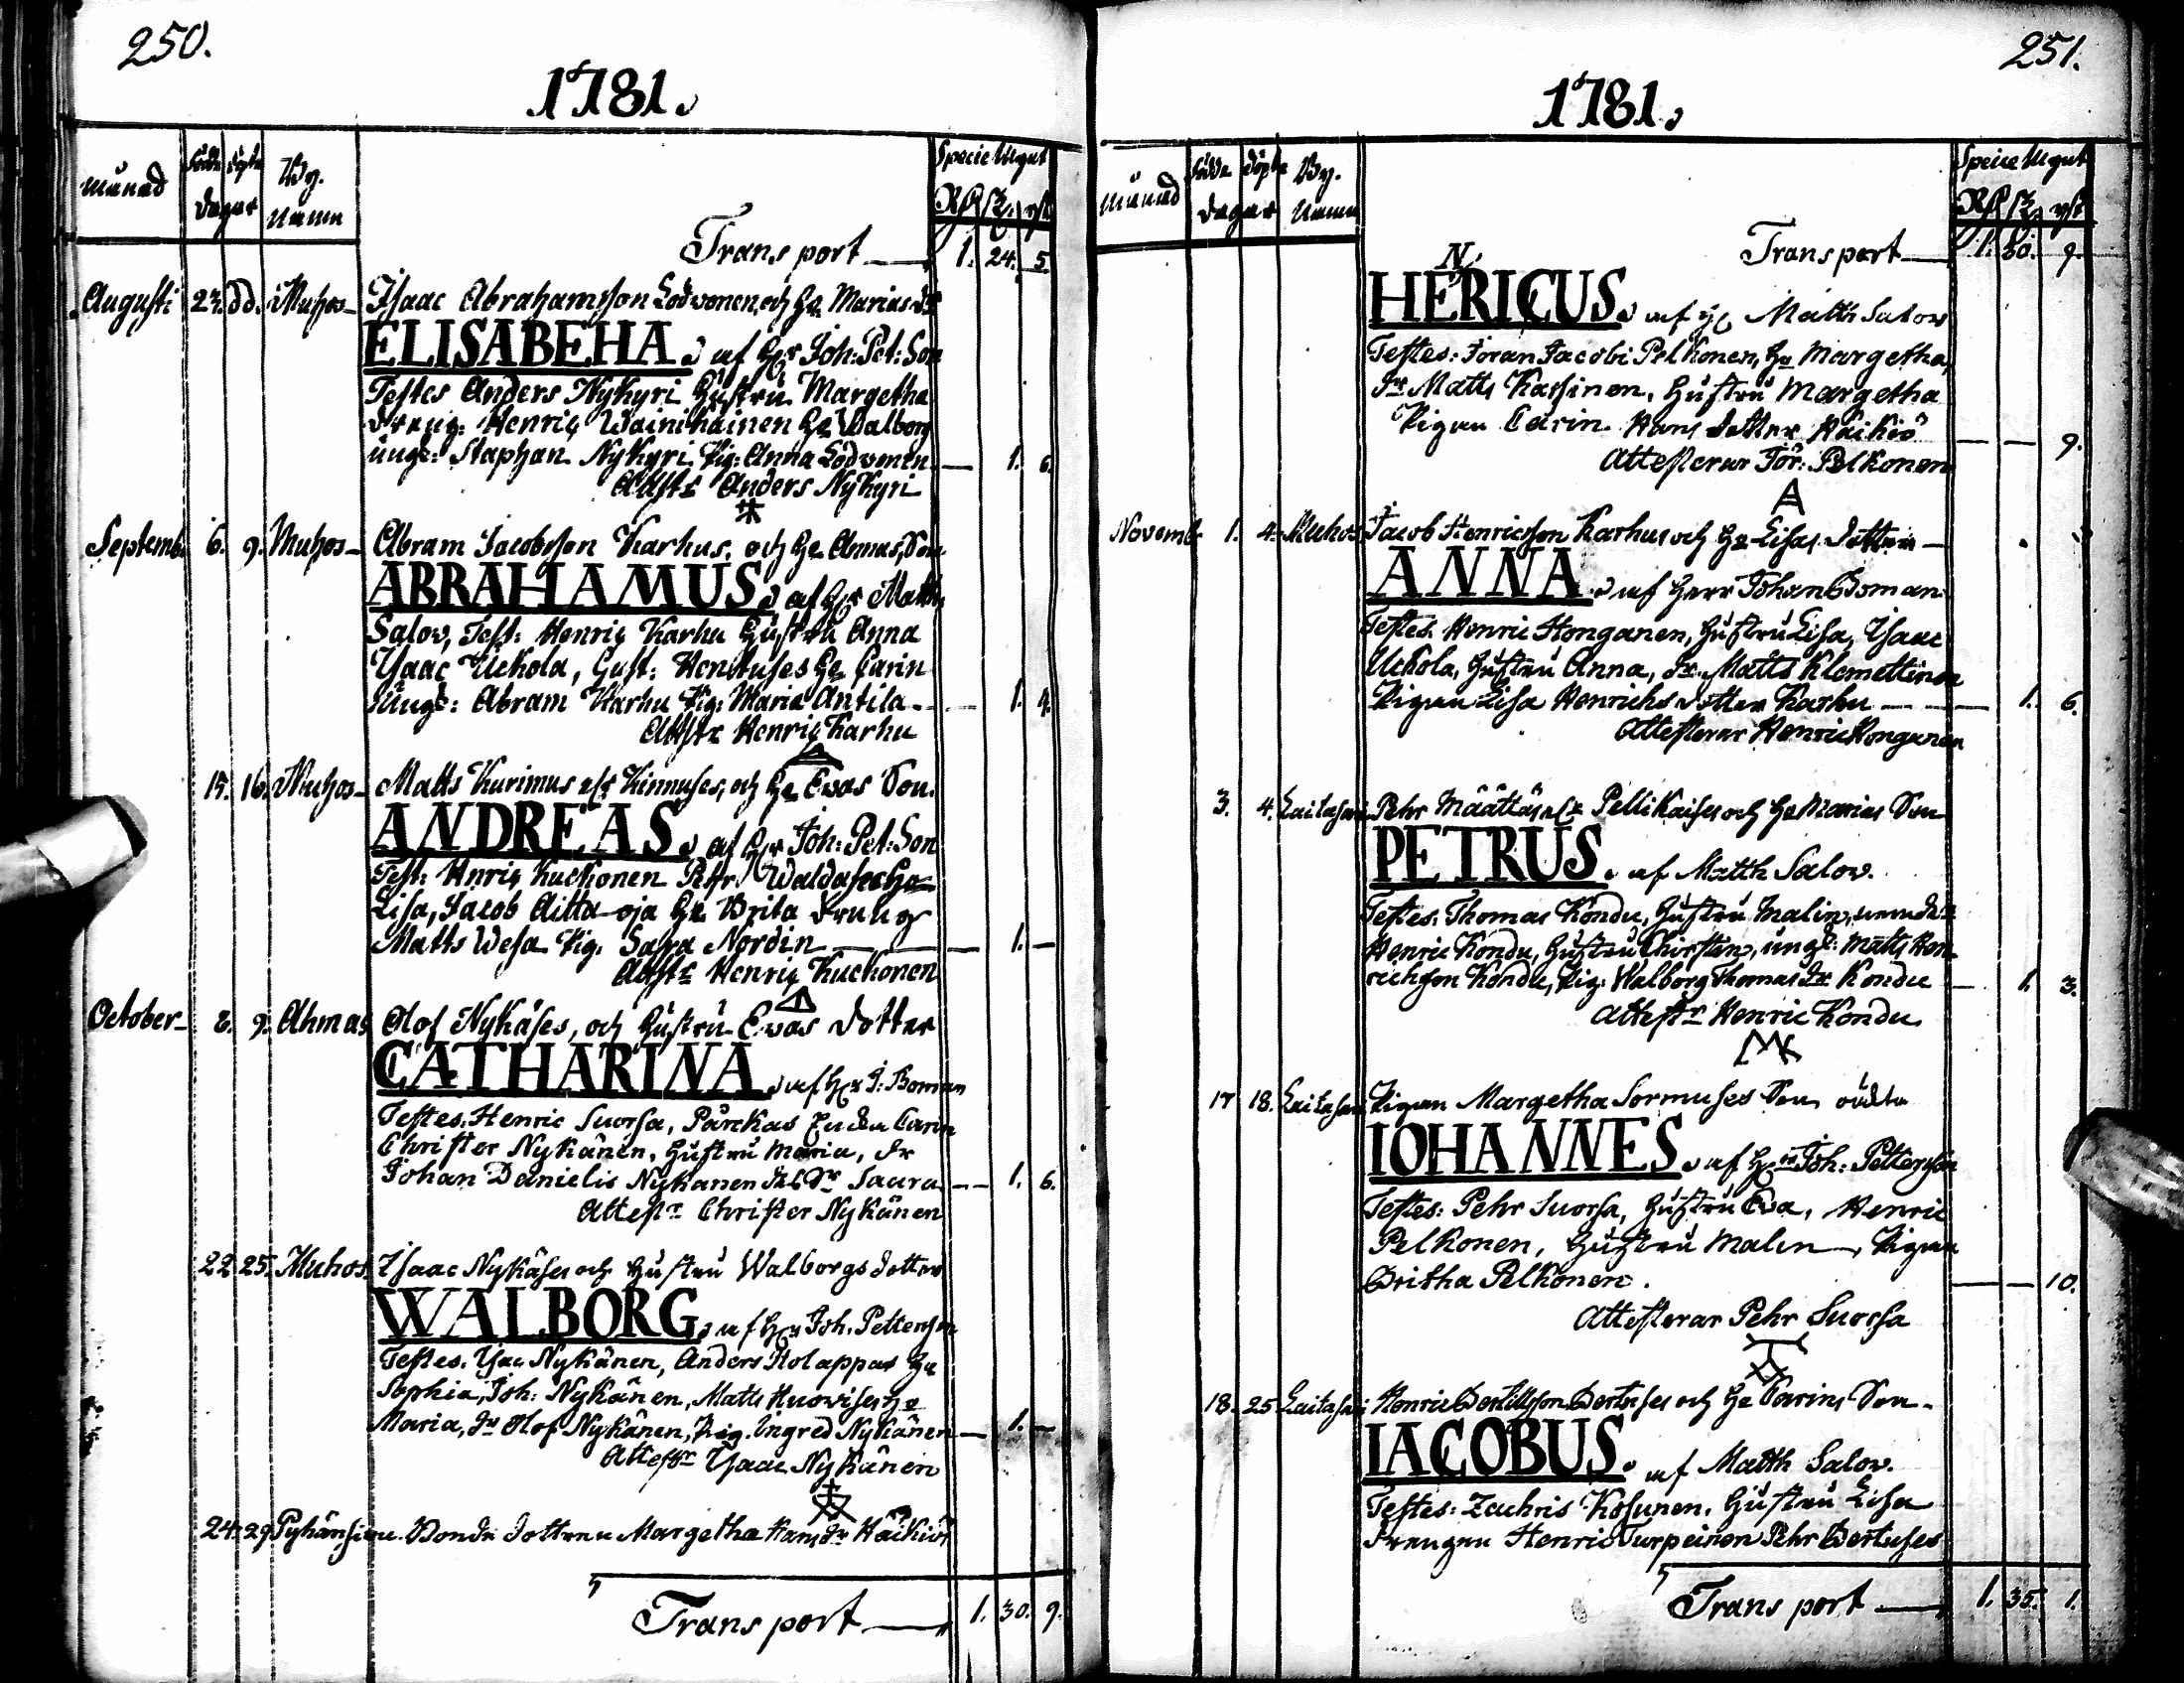 250.
1781.
månad Födde döpte dagar By. Namn Specie Utgift
Transport 1. 24. 5.
Augusti 23. dd. Muhos Isaac Abrahamsson Lodvonen, och Hu Marias dr
ELISABEHA af Hr Joh: Pet: Son
Testes Anders Nykyri Hustru Margetha
dräng: Henric Wainikainen Hu Walborg
ungk: Staphan Nykyri. Pig: Anna Lodvonen 1. 6.
Attstr Anders Nykyri
Septemb. 6. 9. Muhos Abram Jacobsson Karhus, och Hu Annas, Son
ABRAHAMUS af Hr Matth
Salov, Test: Henric Karhu Hustru Anna
Isaac Uckola, Gust: Hu Carin
Ungk: Abram Karhu Pig: Maria Antila 1. 4.
Attstr Henric Karhu
15. 16. Muhos Matts Kurimus och Hu Evas Son.
ANDREAS af Hr Joh: Pet: Son
Test: Hnric Kuckonen Pehr
Lisa, Jacob Aitta-oja Hu Brita dräng
Matts Wesa Pig: Sara Nordin 1. —
Attstr Henric Kuckonen
October 8. 9. Ahmas Olof Nykäses, och Hustru Evas dotter
CATHARINA af Hr J: Boman
Testes. Henric Suorsa, Enka Carin
Christer Nykänen, Hustru Maria, dr
Johan Danielis Nykänen Saara 1. 6.
Attestr Christer Nykänen
22 25. Muhos. Isaac Nykäses och Hustru Walborgs dotter
WALBORG af Hr Joh. Petterson
Testes. Isac Nykänen, Anders Holappas Hu
Sophia, Joh: Nykänen, Matts Huovises Hu
Maria, dr Olof Nykänen, Pig. Ingred Nykänen 1. —
Attestr Isaac Nykänen
24. 29. Pyhänsivu. Bonde dottren Margetha Hans dr Häikiös
Transport 1. 30. 9.
251.
1781.
Månad Födde döpte dagar By. Namn Speice Utgift
Transport 1. 30. 9.
N.
HERICUS. af H Matth Salov
Testes: Jöran Jacobi Pelkonen, Hu Margetha,
dr Matts Karhinen, Hustru Margetha
Pigan Carin Hans dotter Häikiö — — 9.
Attesterar Jör: Pelkonen
Novemb. 1. 4. Muhos Jacob Henricsson Karhus och Hu Lisas dotter
ANNA af Herr Johan Boman
Testes. Henric Honganen, Hustru Lisa, Isaac
Uckola, Hustru Anna, dr Matts Klemettinen
Pigan Lisa Henrichs dotter Karhu — 1. 6.
Attesterar Henric Honganen
3. 4. Laitasari Pehr Määttä Pellikaises och Hu Marias Son
PETRUS. af Matth Salov.
Testes. Thomas Kondu, Hustru Malin,
Henric Kondu, Hustru Chirsten, ungk: Matts Hen-
richson Kondu, Pig: Walborg Thomas dr Kondu — 1. 3.
Attestr Henric Kondu
17 18. Laitasari Pigan Margetha Sormuses Son oäckta
IOHANNES af Hr Joh: Petterson
Testes: Pehr Suorsa, Hustru Eva, Henric
Pelkonen, Hustru Malin, Pigan
Britha Pelkonen. — — 10.
Attesterar Pehr Suorsa
18. 25 Laitasari Henric Bertillsson Bertuses och Hu Carins Son.
IACOBUS. af Matth Salov.
Testes: Zachris Kosunen, Hustru Lisa
drengen Henric Turpeinen Pehr Bertuses
Transport 1. 35. 1.